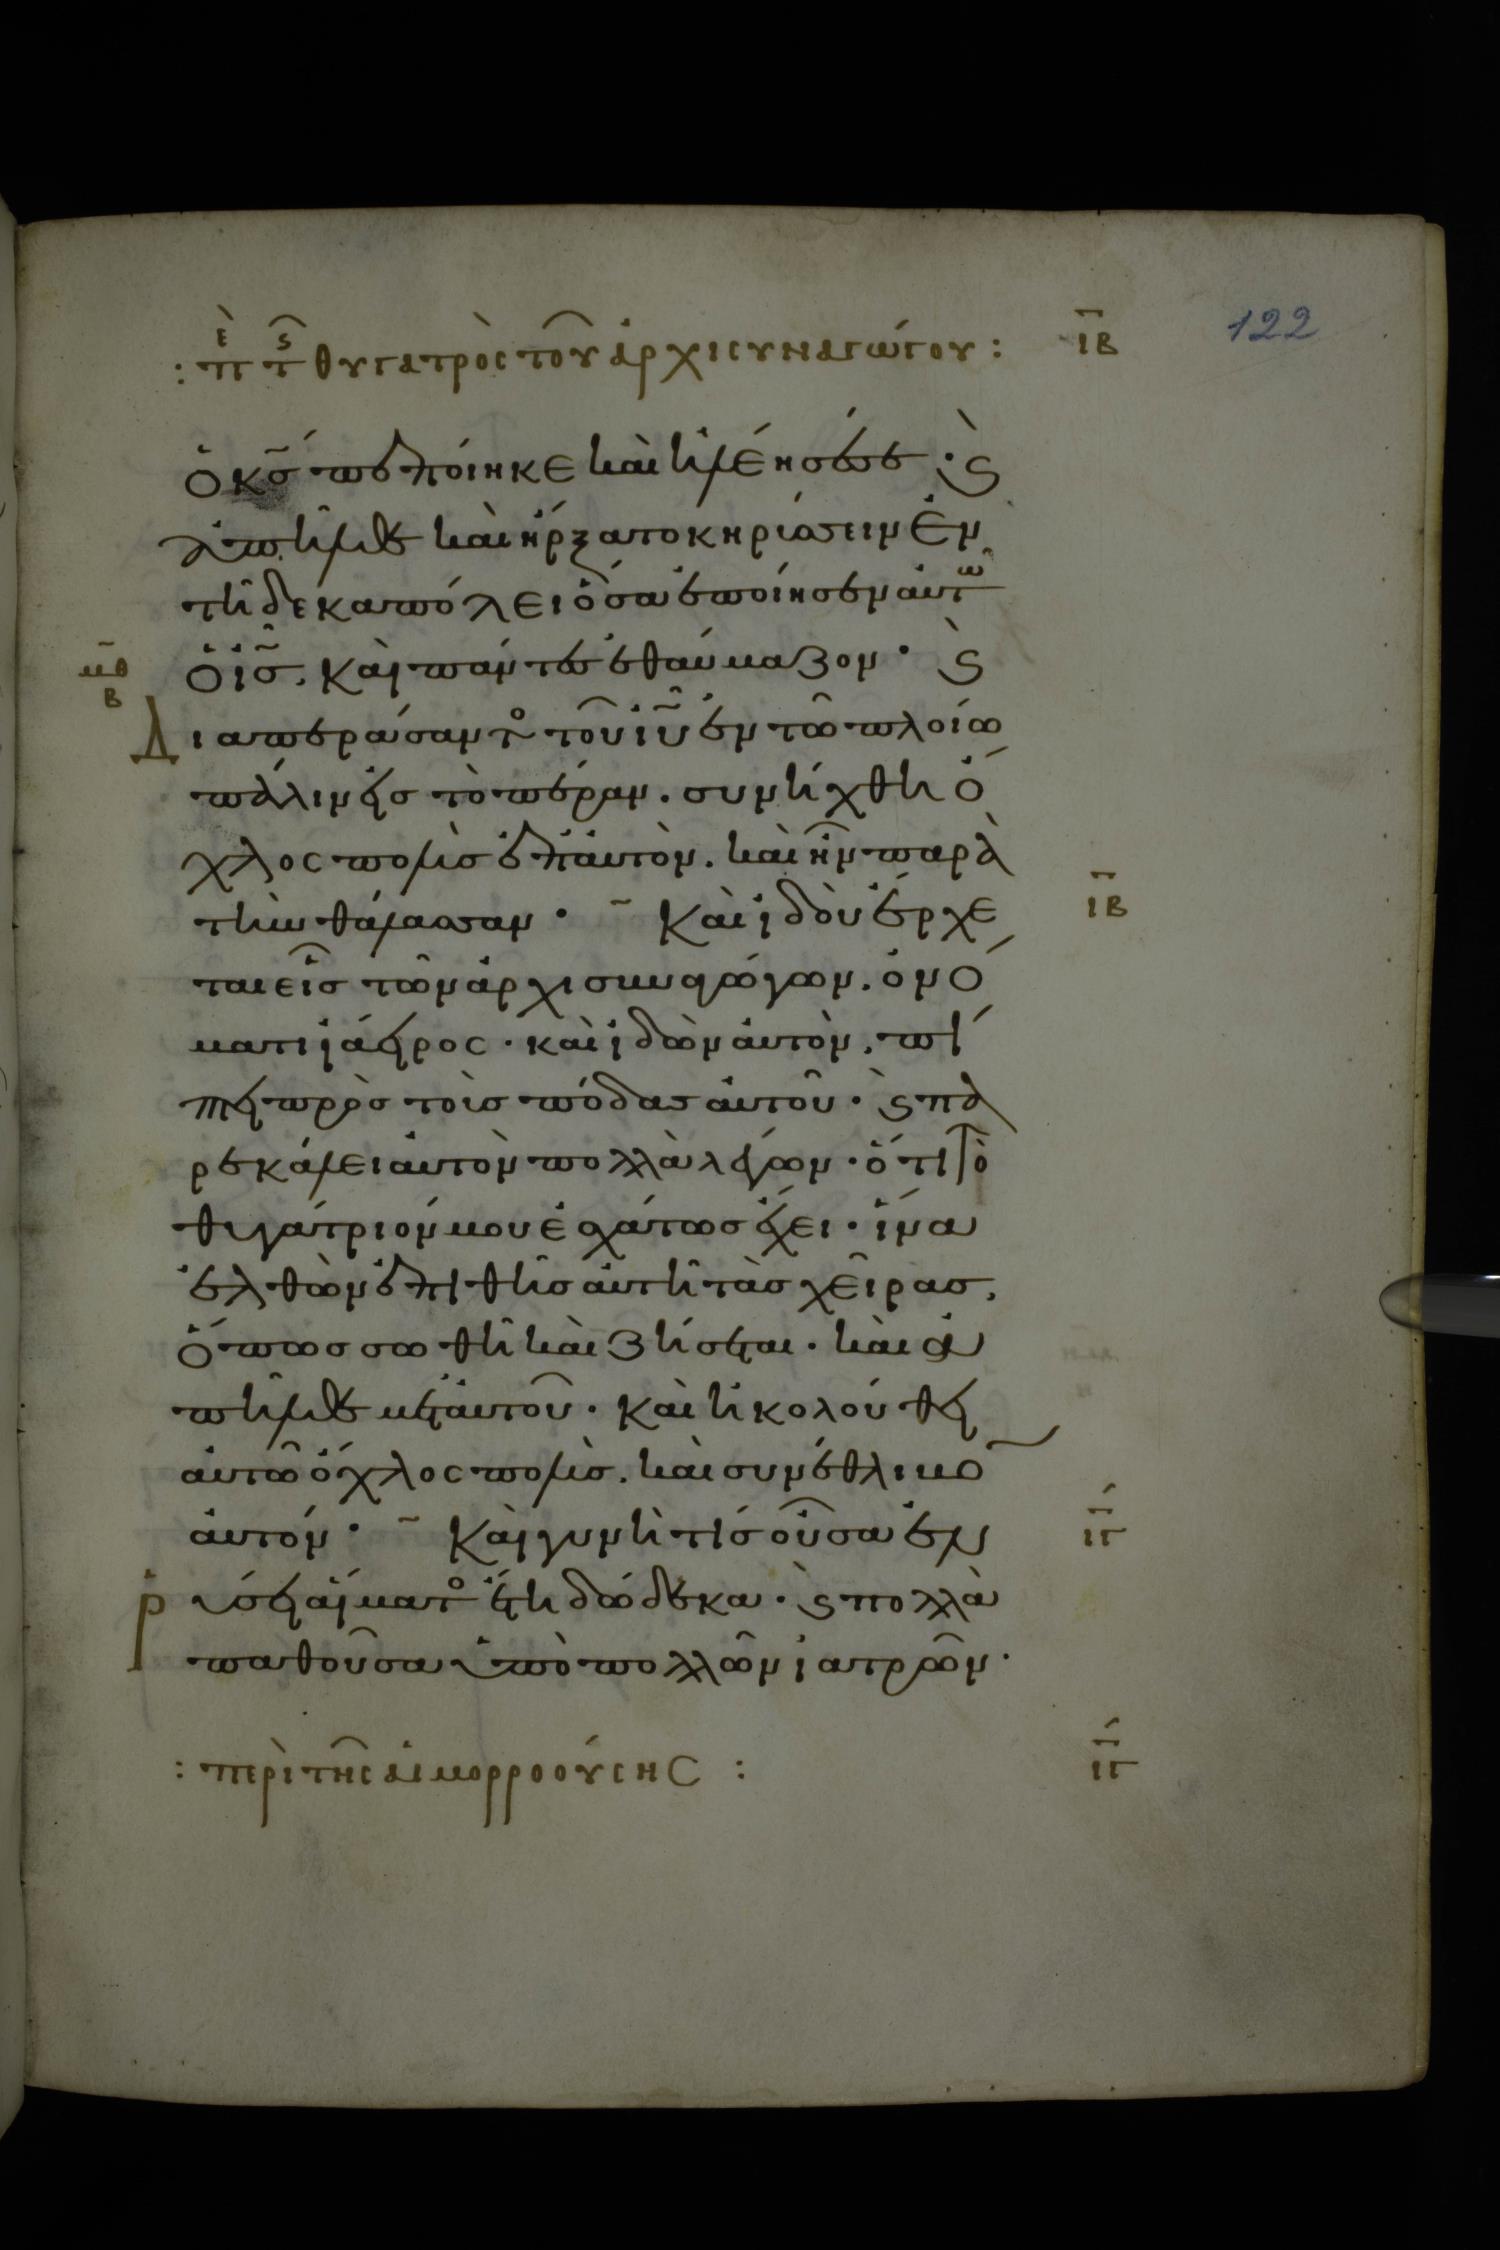 122
: πε τς θυγατρὸς τοῦ ἀρχισυναγώγου : ιβ
ὁ κς πεποίηκε καὶ ἠλέησέ σε · ϛ
ἀπῆλθε καὶ ἤρξατο κηρύσσειν ἐν
τῆ δεκαπόλει ὅσα ἐποίησεν αὐτῶ
ὁ ις. καὶ πάντες ἐθαύμαζον · ϛ
μθ
β
Διαπεράσαντος τοῦ ιυ ἐν τῶ πλοίω
πάλιν εἰς τὸ πέραν. συνήχθη ὄ
χλος πολὺς ἐπ' αὐτὸν. καὶ ἦν παρὰ
τὴν θάλασσαν · Καὶ ἰδοὺ ἔρχε ιβ
ται εἷς τῶν ἀρχισυναγώγων. ὀνό
ματι ἰάειρος · καὶ ἰδὼν αὐτὸν. πί
πτει πρὸς τοὺς πόδας αὐτοῦ · ϛ πα
ρεκάλει αὐτὸν πολλὰ λέγων · ὅτι τὸ
θυγάτριόν μου ἐσχάτως ἔχει · ἵνα
ἐλθὼν ἐπιθῆς αὐτῆ τὰς χεῖρας.
ὅπως σωθῆ καὶ ζήσεται · καὶ ἀ
πῆλθε μετ' αὐτοῦ · καὶ ἠκολούθει
αὐτῶ ὄχλος πολὺς. καὶ συνέθλιβον
αὐτόν · Καὶ γυνὴ τίς οὖσα ἐν ιγ
ῥύσει αἵματος ἔτη δώδεκα · ϛ πολλὰ
παθοῦσα ὑπὸ πολλῶν ἰατρῶν ·
: περὶ τῆς αἱμορροούσης : ιγ